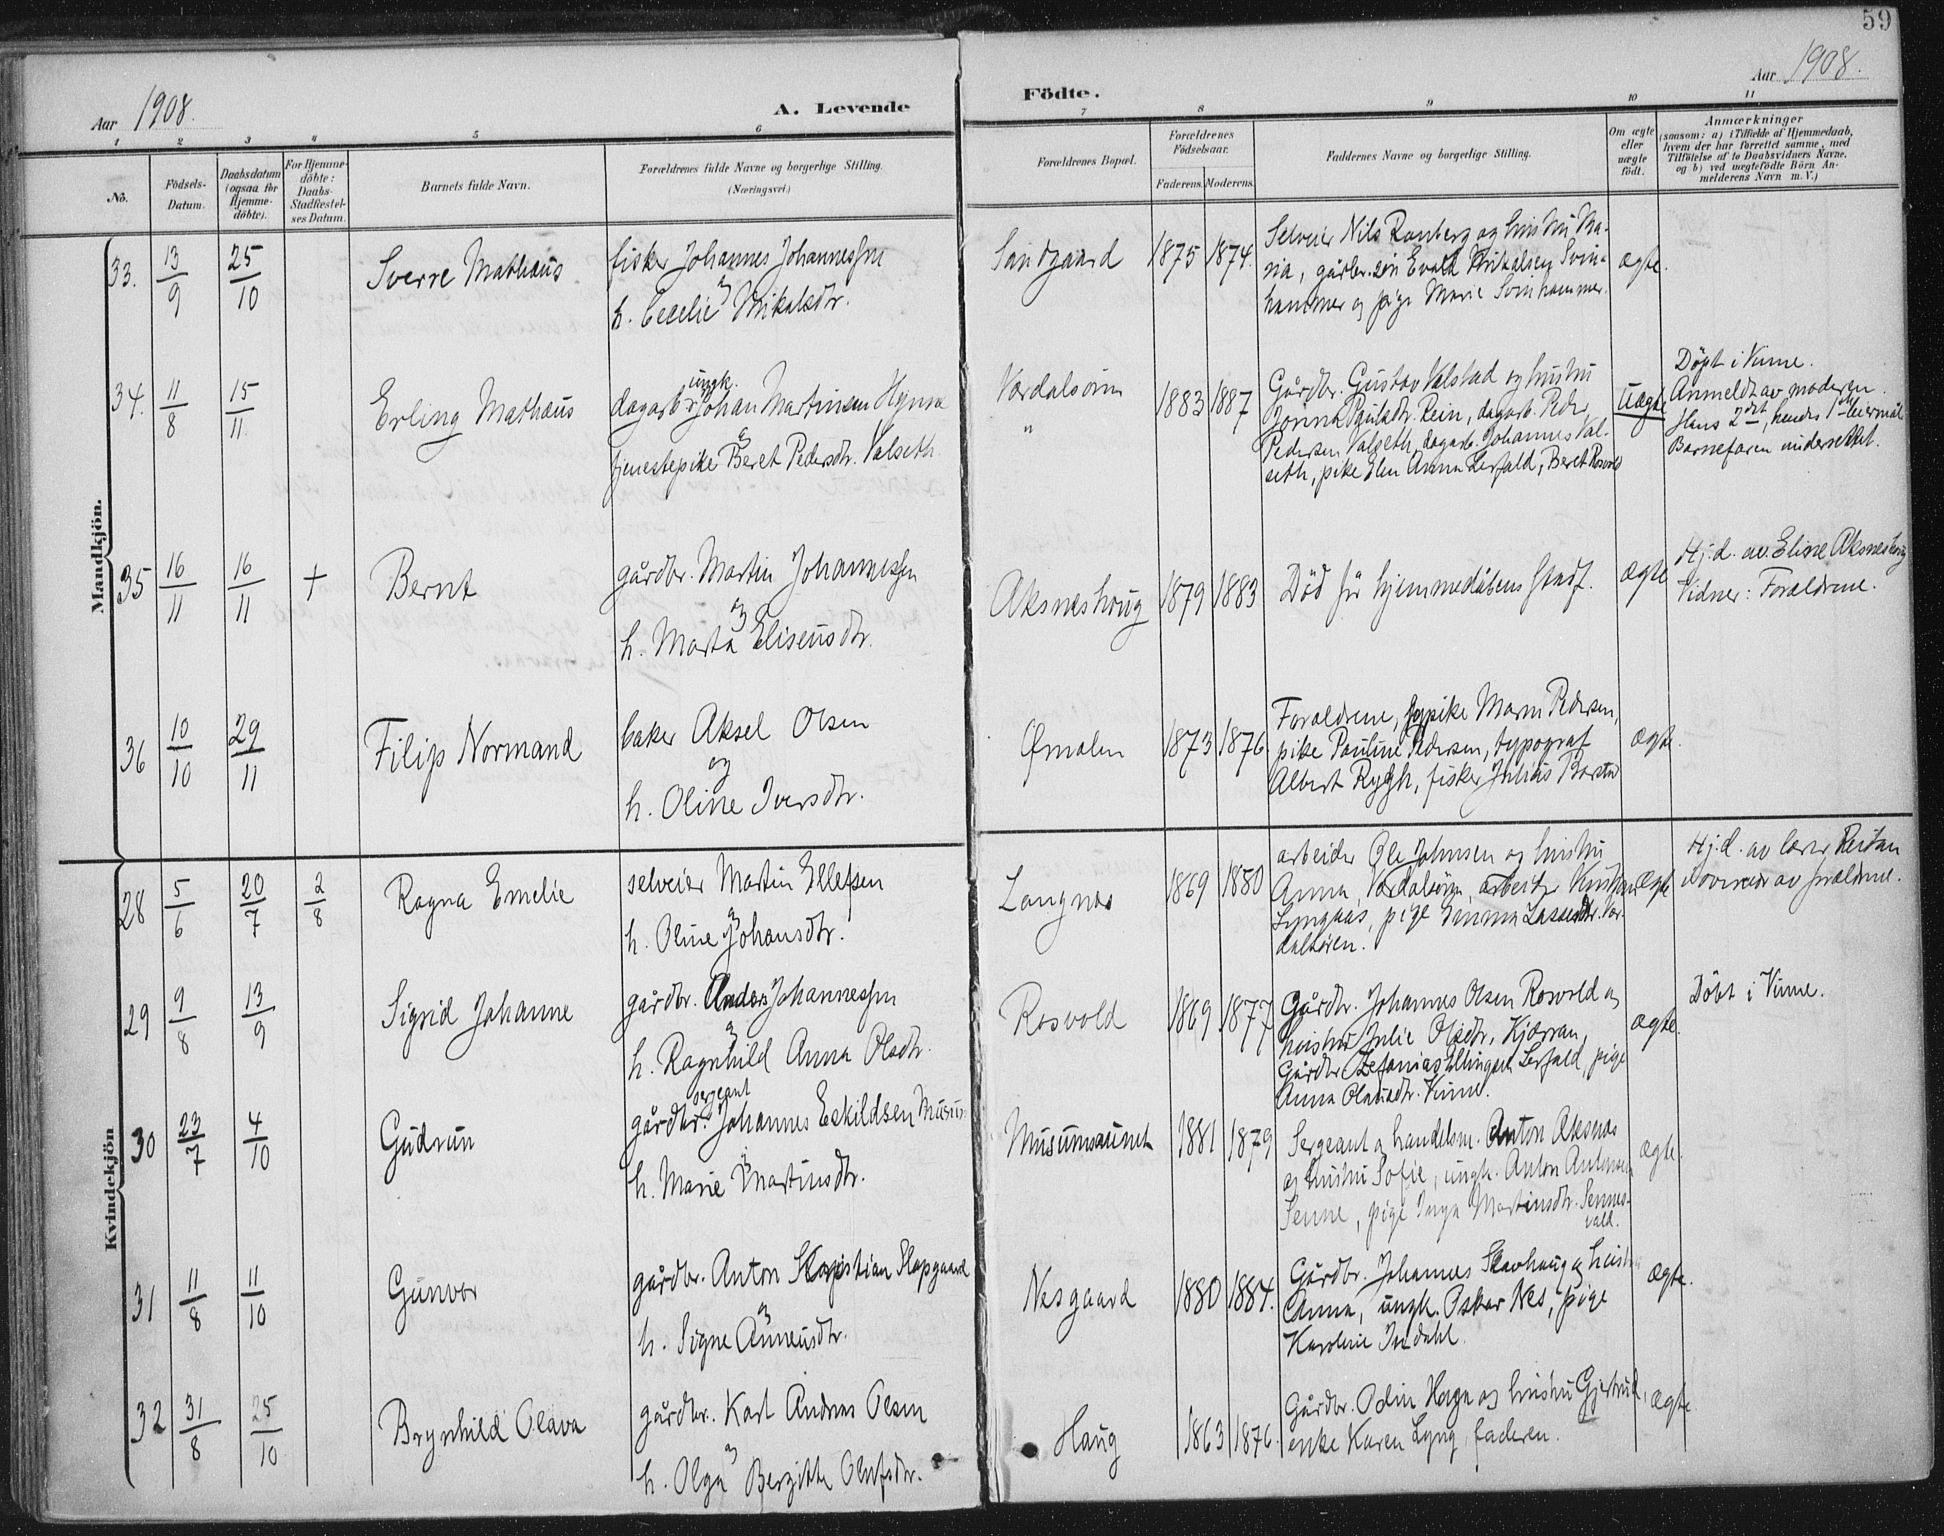 59
Aar 1908.
A. Levende Födte.
Aar 1908.
1 2 3 4 5 6 7 8 9 10 11
No.
Födsels-Datum.
Daabsdatum (ogsaa for Hjemmedöbte).
For Hjemmedöbte: Daabs-Stadfæstelses Datum.
Barnets fulde Navn.
Forældrenes fulde Navne og borgerlige Stilling. (Næringsvei.)
Forældrenes Bopæl.
Forældrenes Födselsaar.
Faderens. Moderens.
Faddernes Navne og borgerlige Stilling.
Om ægte eller uægte födt.
Anmærkninger
(saasom: a) i Tilfælde af Hjemmedaab, hvem der har forrettet samme, med Tilföielse af to Daabsvidners Navne, og b) ved uægtefödte Börn Anmelderens Navn m. V.)
Mandkjön.
33. 13/9 25/10 Sverre Mathæus
fisker Johannes Johannessen
og
h. Cecelie Mikalsdtr.
Sandgaard 1875 1874.
Selveier Nils Ronberg og hustru Ma-
ria, gårbr.søn Evald Mikalsen Svin-
hammer og pige Marie Svinhammer.
ægte.
34. 11/8 15/11 Erling Mathæus
ungk.
dagarb. Johan Martinsen Hynne
og
tjenestepike Beret Pedersdtr. Valseth.
Værdalsøren
"
1883 1887
Gårdbr. Gustav Valstad og hustru
Jørina Paulsdtr. Rein, dagarb. Peder
Pedersen Valseth, dagarb. Johannes Val-
seth, pike Elen Anna Lerfald, Beret Rosvold
Uægte
Døpt i Vinne.
Anmeldt av moderen.
Hans 2det, hendes 1ste leiermål
Barnefaren undersøkt.
35 16/11 16/11 + Bernt
gårdbr. Martin Johannessen
og
h. Marta Eliseusdtr.
Aksneshoug 1879 1883
Død før hjemmedåbens stadf.
ægte
Hj.d. av Eline Aksneshoug
Vidner: Forældrene.
36 10/10 29/11 Filip Normand
baker Aksel Olsen
og
h. Oline Iversdtr.
Ørmelen 1873 1876
Forældrene, pike Marn Pedersen,
pike Pauline Pedersen, typograf
Albert Rygh, fisker Julius Barstad
ægte.
Kvindekjön
28 5/6 20/7 2/8 Ragna Emelie
selveier Martin Ellefsen
og
h. Oline Johansdtr.
Langnes 1869 1880
arbeider Ole Johnsen og hustru
Anna, Værdalsøren, arbeider Kristian
Lyngaas, pige Emma Lassesdtr. Vær-
dalsøren.
ægte
Hj.d. av lærer Reitan
overvær av forældrene.
29 9/8 13/9 Sigrid Johanne
gårdbr. Anders Johannessen
og
h. Ragnhild Anna Olsdtr.
Rosvold 1869 1877
Gårdbr. Johannes Olsen Rosvold og
hustru Julie Olsdtr. Kjærran,
Gårdbr. Zefanias Ellingsen Lerfald, pige
Anna Olausdtr. Vinne.
ægte.
Döbt i Vinne.
30 23/7 4/10 Gudrun
sergeant
gårdbr. Johannes Eskildsen Musum
og
h. Marie Martinsdtr.
Musumsaunet 1881 1879
Sergeant og handelsm. Anton Aksnes
og hustru Sofie, ungk. Anton Antonsen
Senne, pige Inga Martinsdtr. Sennes-
vald.
ægte.
31 11/8 11/10 Gunvor
gårdbr. Anton Kristian Slapgaard
og
h. Signe Anneusdtr.
Nesgaard 1880 1884.
Gårdbr. Johannes Skavhaug og hustru
Anna, ungk. Oskar Nes, pige
Karoline Indahl.
ægte.
32 31/8 25/10 Brynhild Olava
gårdbr. Karl Andreas Olsen
og
h. Olga Bergitte Olufsdtr.
Haug 1863 1876.
Gårdbr. Odin Haga og hustru Gjertrud,
enke Karen Lyng, faderen.
ægte